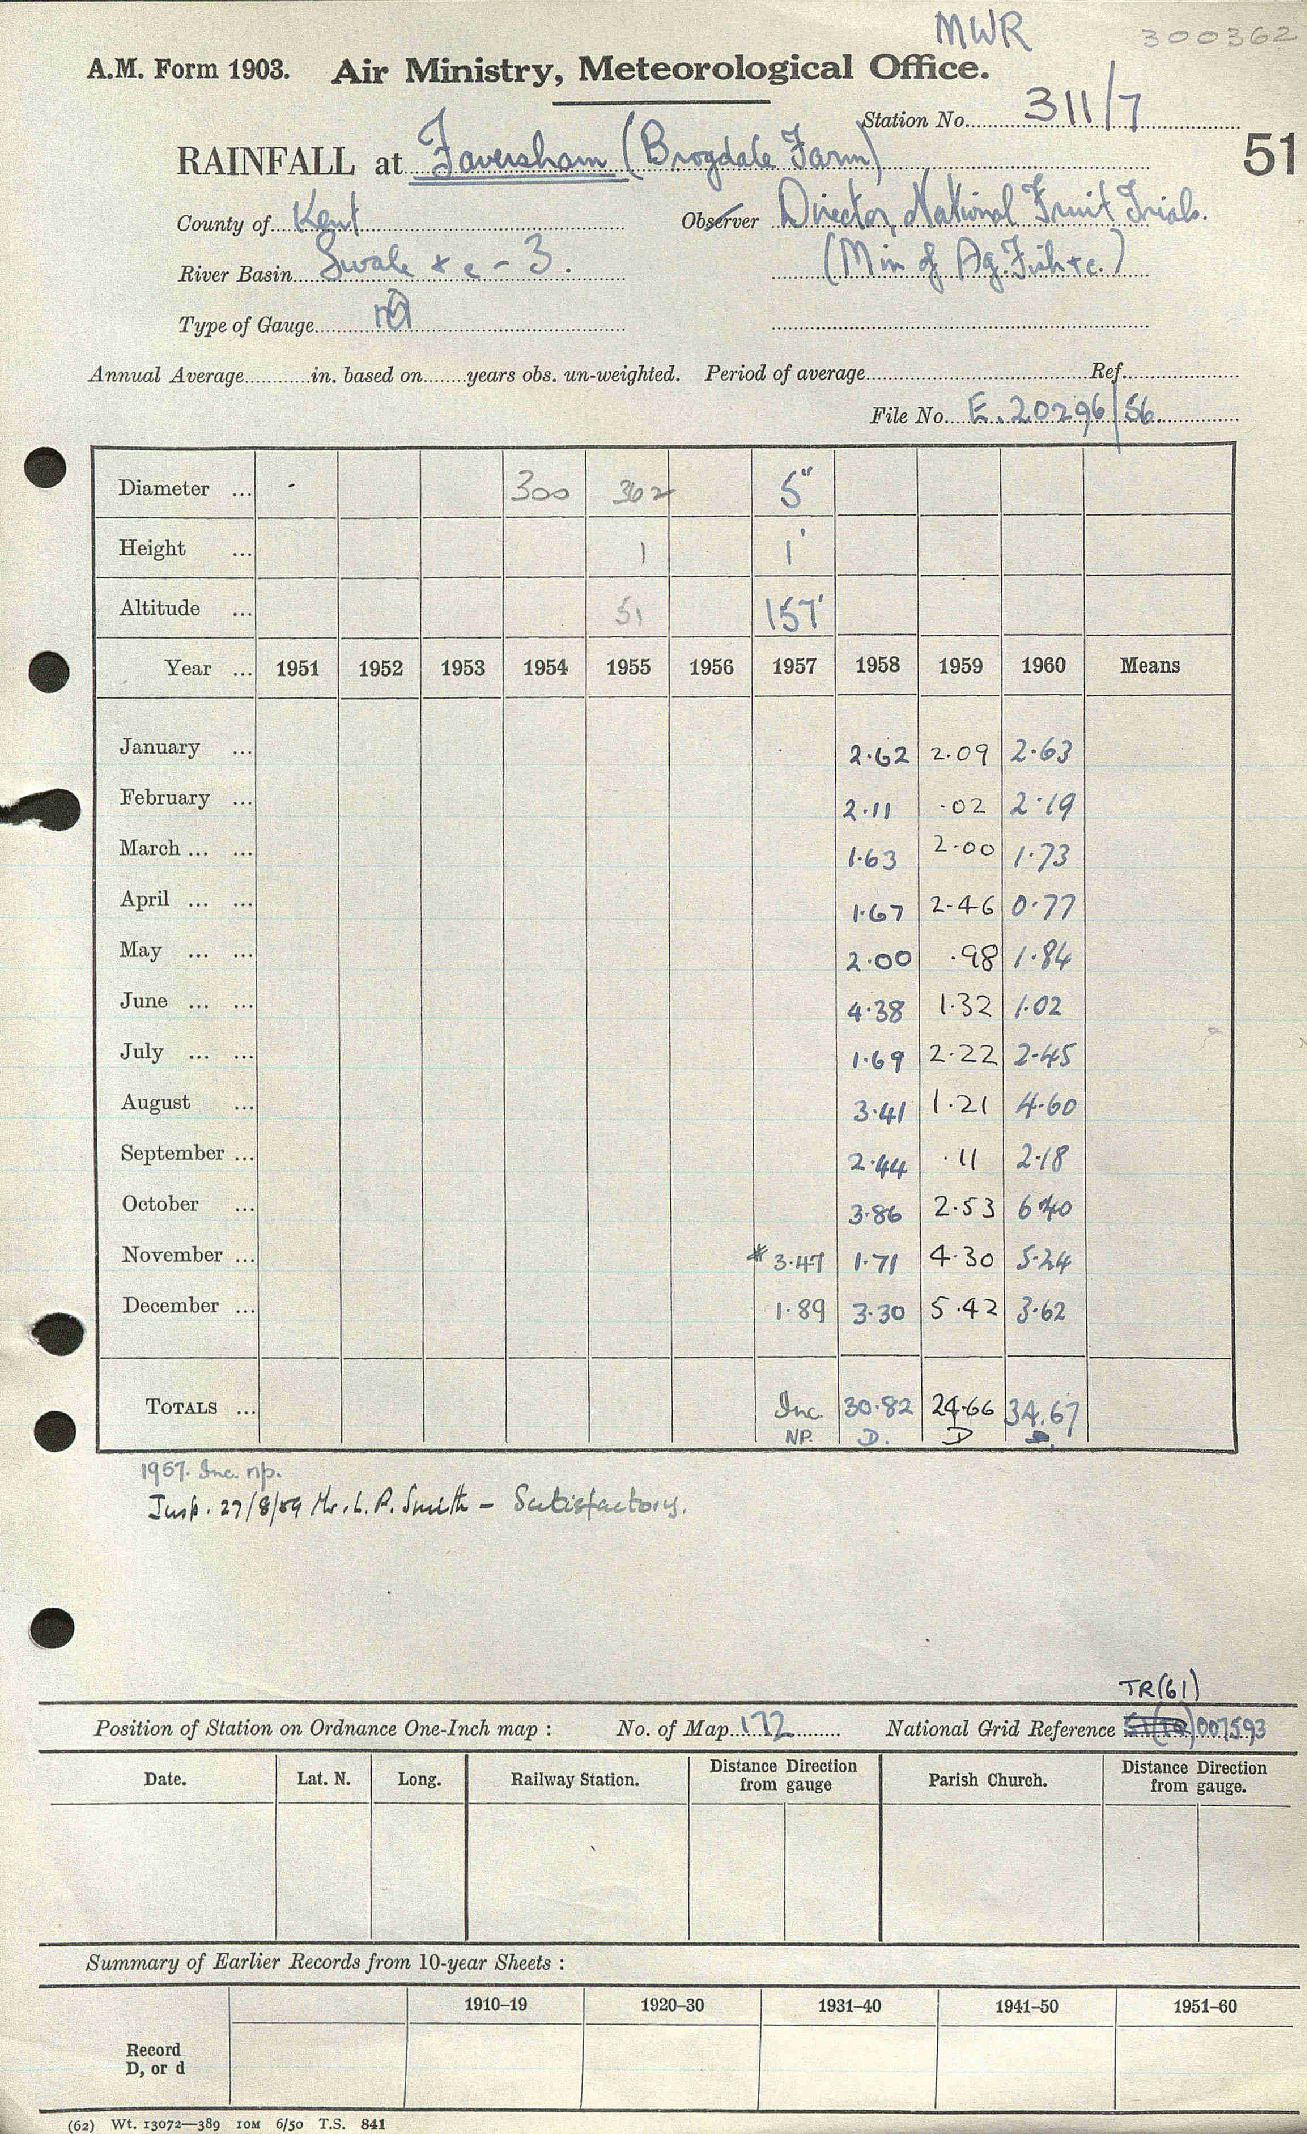 MWR 300362
A.M. Form 1903. Air Ministry, Meteorological Office.
Station No. 311/7
51
RAINFALL at Faversham (Brogdale Farm)
County of Kent Observer Director, National Fruit Trials.
River Basin Swale &c - 3. (Min of Ag. Fish &c.)
Type of Gauge
Annual Average in. based on years obs. un-weighted. Period of average Ref.
File No. E.20296/56
Diameter ... 300 302 5"
Height ... 1 1'
Altitude ... 51 157'
Year ... 1951 1952 1953 1954 1955 1956 1957 1958 1959 1960 Means
January ... 2.62 2.09 2.63
February ... 2.11 .02 2.19
March ... ... 1.63 2.00 1.73
April ... ... 1.67 2.46 0.77
May ... ... 2.00 .98 1.84
June ... ... 4.38 1.32 1.02
July ... ... 1.69 2.22 2.45
August ... 3.41 1.21 4.60
September ... 2.44 .11 2.18
October ... 3.86 2.53 6.40
November ... * 3.47 1.71 4.30 5.24
December ... 1.89 3.30 5.42 3.62
TOTALS ... Inc. 30.82 24.66 34.67
NP. D. D D.
1957. Inc. np.
Insp. 27/8/59 Mr. L. P. Smith - Satisfactory.
TR(61)
Position of Station on Ordnance One-Inch map : No. of Map 172 National Grid Reference 007593
Date. Lat. N. Long. Railway Station. Distance Direction from gauge Parish Church. Distance Direction from gauge.
Summary of Earlier Records from 10-year Sheets :
1910–19 1920–30 1931–40 1941–50 1951–60
Record
D, or d
(62) Wt. 13072—389 10M 6/50 T.S. 841